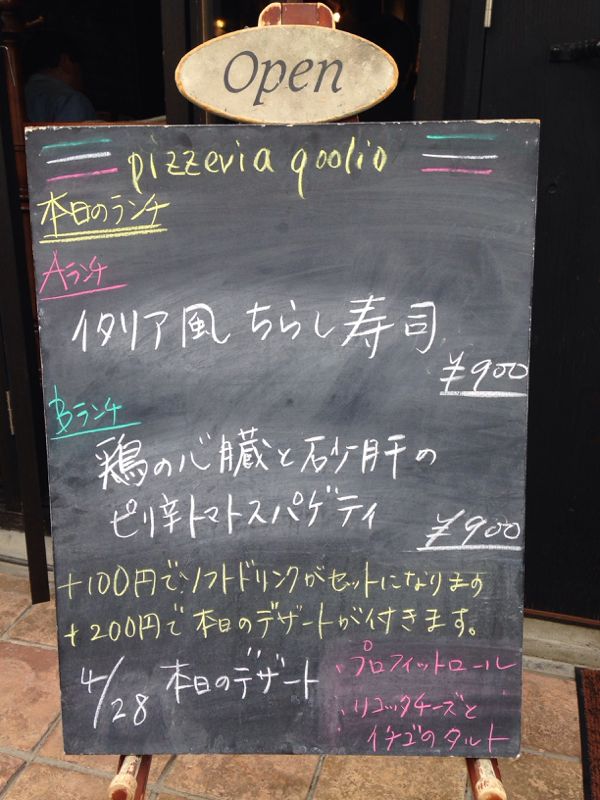 Open
pizzeria goolio
本日のランチ
Aランチ
イタリア風ちらし寿司
¥900
Bランチ
鶏の心臓と砂肝の
ピリ辛トマトスパゲティ
¥900
+100円でソフトドリンクがセットになります
+200円で本日のデザートが付きます。
4/28 本日のデザート
・プロフィットロール
・リコッタチーズと
イチゴのタルト